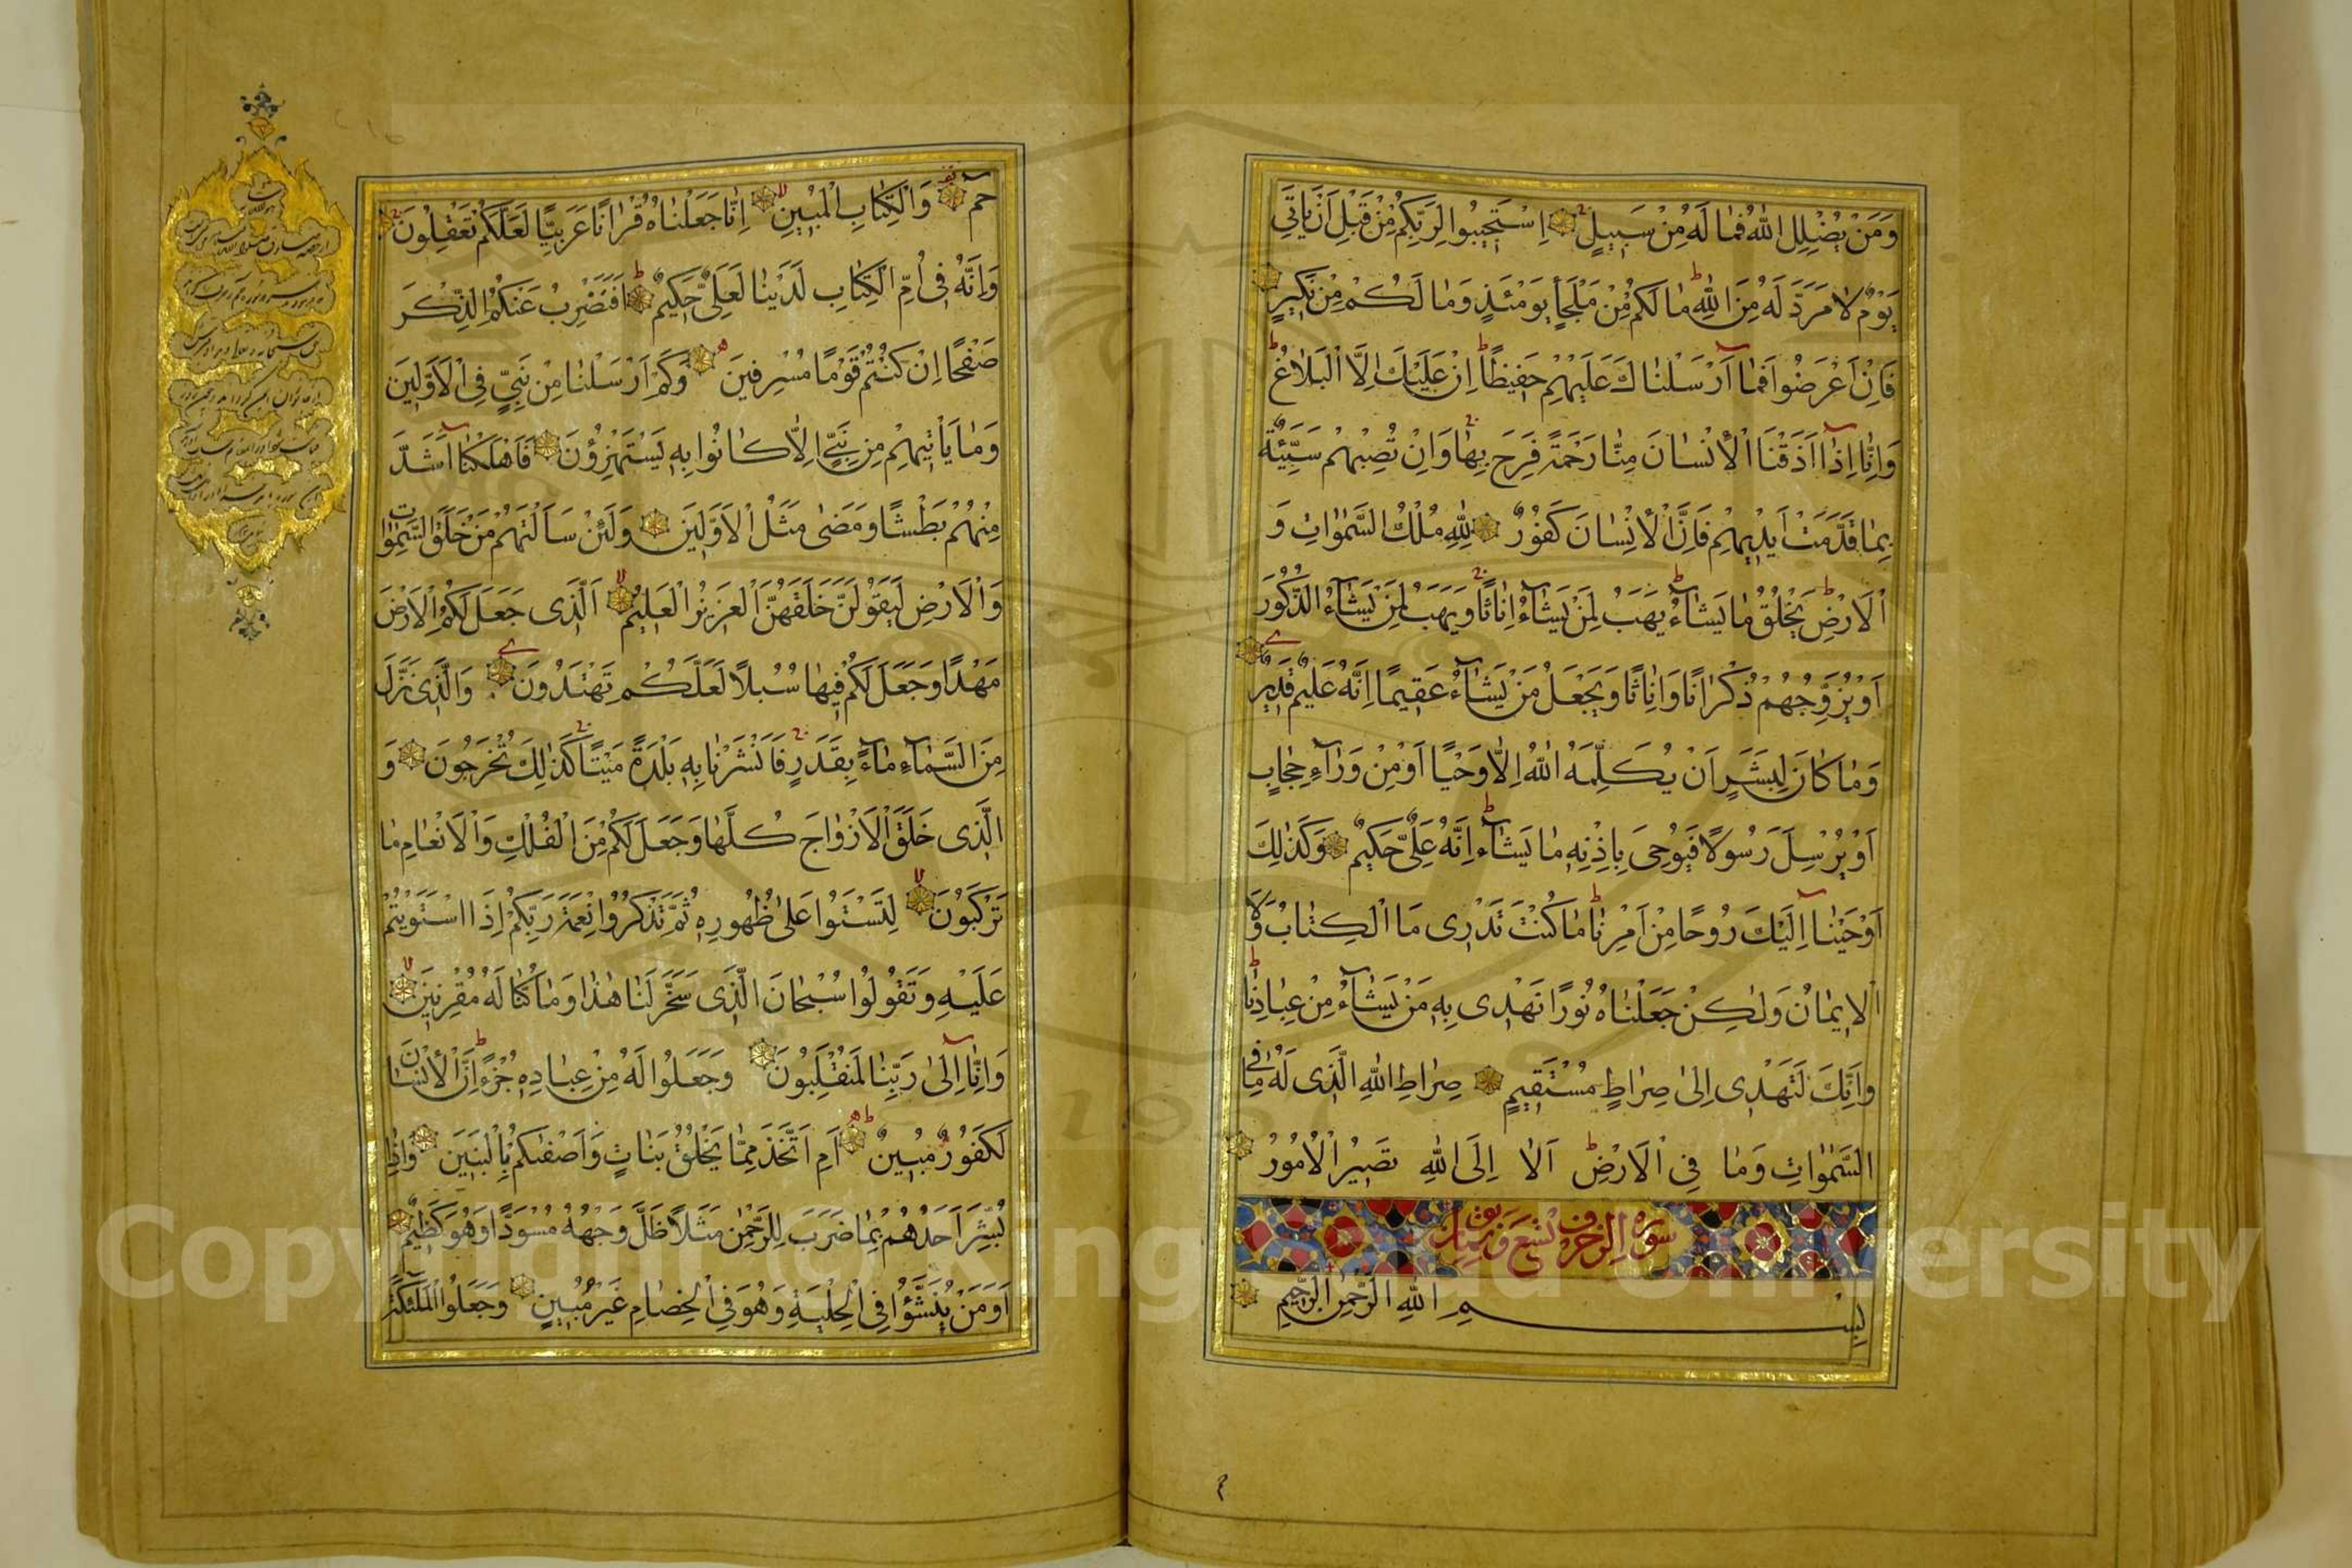 وَمَنْ يُضْلِلِ اللّٰهُ فَمَا لَهُ مِنْ سَبِيلٍ اِسْتَجِيبُوا لِرَبِّكُمْ مِنْ قَبْلِ اَنْ يَاْتِىَ
يَوْمٌ لَا مَرَدَّ لَهُ مِنَ اللّٰهِ مَا لَكُمْ مِنْ مَلْجَأٍ يَوْمَئِذٍ وَمَا لَكُمْ مِنْ نَكِيرٍ
فَاِنْ اَعْرَضُوا فَمَا اَرْسَلْنَاكَ عَلَيْهِمْ حَفِيظًا اِنْ عَلَيْكَ اِلَّا الْبَلَاغُ
وَاِنَّا اِذَا اَذَقْنَا الْاِنْسَانَ مِنَّا رَحْمَةً فَرِحَ بِهَا وَاِنْ تُصِبْهُمْ سَيِّئَةٌ
بِمَا قَدَّمَتْ اَيْدِيهِمْ فَاِنَّ الْاِنْسَانَ كَفُورٌ لِلّٰهِ مُلْكُ السَّمٰوَاتِ وَ
الْاَرْضِ يَخْلُقُ مَا يَشَاءُ يَهَبُ لِمَنْ يَشَاءُ اِنَاثًا وَيَهَبُ لِمَنْ يَشَاءُ الذُّكُورَ
اَوْ يُزَوِّجُهُمْ ذُكْرَانًا وَاِنَاثًا وَيَجْعَلُ مَنْ يَشَاءُ عَقِيمًا اِنَّهُ عَلِيمٌ قَدِيرٌ
وَمَا كَانَ لِبَشَرٍ اَنْ يُكَلِّمَهُ اللّٰهُ اِلَّا وَحْيًا اَوْ مِنْ وَرَاءِ حِجَابٍ
اَوْ يُرْسِلَ رَسُولًا فَيُوحِىَ بِاِذْنِهِ مَا يَشَاءُ اِنَّهُ عَلِىٌّ حَكِيمٌ وَكَذٰلِكَ
اَوْحَيْنَا اِلَيْكَ رُوحًا مِنْ اَمْرِنَا مَا كُنْتَ تَدْرِى مَا الْكِتَابُ وَلَا
الْاِيمَانُ وَلٰكِنْ جَعَلْنَاهُ نُورًا نَهْدِى بِهِ مَنْ يَشَاءُ مِنْ عِبَادِنَا
وَاِنَّكَ لَتَهْدِى اِلٰى صِرَاطٍ مُسْتَقِيمٍ صِرَاطِ اللّٰهِ الَّذِى لَهُ مَا فِى
السَّمٰوَاتِ وَمَا فِى الْاَرْضِ اَلَا اِلَى اللّٰهِ تَصِيرُ الْاُمُورُ
سورة الزخرف تسع وثمانون
بِسْمِ اللّٰهِ الرَّحْمٰنِ الرَّحِيمِ
حٰمٓ وَالْكِتَابِ الْمُبِينِ اِنَّا جَعَلْنَاهُ قُرْاٰنًا عَرَبِيًّا لَعَلَّكُمْ تَعْقِلُونَ
وَاِنَّهُ فِى اُمِّ الْكِتَابِ لَدَيْنَا لَعَلِىٌّ حَكِيمٌ اَفَنَضْرِبُ عَنْكُمُ الذِّكْرَ
صَفْحًا اِنْ كُنْتُمْ قَوْمًا مُسْرِفِينَ وَكَمْ اَرْسَلْنَا مِنْ نَبِىٍّ فِى الْاَوَّلِينَ
وَمَا يَاْتِيهِمْ مِنْ نَبِىٍّ اِلَّا كَانُوا بِهِ يَسْتَهْزِؤُنَ فَاَهْلَكْنَا اَشَدَّ
مِنْهُمْ بَطْشًا وَمَضٰى مَثَلُ الْاَوَّلِينَ وَلَئِنْ سَاَلْتَهُمْ مَنْ خَلَقَ السَّمٰوَاتِ
وَالْاَرْضَ لَيَقُولُنَّ خَلَقَهُنَّ الْعَزِيزُ الْعَلِيمُ اَلَّذِى جَعَلَ لَكُمُ الْاَرْضَ
مَهْدًا وَجَعَلَ لَكُمْ فِيهَا سُبُلًا لَعَلَّكُمْ تَهْتَدُونَ وَالَّذِى نَزَّلَ
مِنَ السَّمَاءِ مَاءً بِقَدَرٍ فَاَنْشَرْنَا بِهِ بَلْدَةً مَيْتًا كَذٰلِكَ تُخْرَجُونَ وَ
الَّذِى خَلَقَ الْاَزْوَاجَ كُلَّهَا وَجَعَلَ لَكُمْ مِنَ الْفُلْكِ وَالْاَنْعَامِ مَا
تَرْكَبُونَ لِتَسْتَوُا عَلٰى ظُهُورِهِ ثُمَّ تَذْكُرُوا نِعْمَةَ رَبِّكُمْ اِذَا اسْتَوَيْتُمْ
عَلَيْهِ وَتَقُولُوا سُبْحَانَ الَّذِى سَخَّرَ لَنَا هٰذَا وَمَا كُنَّا لَهُ مُقْرِنِينَ
وَاِنَّا اِلٰى رَبِّنَا لَمُنْقَلِبُونَ وَجَعَلُوا لَهُ مِنْ عِبَادِهِ جُزْءًا اِنَّ الْاِنْسَانَ
لَكَفُورٌ مُبِينٌ اَمِ اتَّخَذَ مِمَّا يَخْلُقُ بَنَاتٍ وَاَصْفٰىكُمْ بِالْبَنِينَ وَاِذَا
بُشِّرَ اَحَدُهُمْ بِمَا ضَرَبَ لِلرَّحْمٰنِ مَثَلًا ظَلَّ وَجْهُهُ مُسْوَدًّا وَهُوَ كَظِيمٌ
اَوَمَنْ يُنَشَّؤُا فِى الْحِلْيَةِ وَهُوَ فِى الْخِصَامِ غَيْرُ مُبِينٍ وَجَعَلُوا الْمَلٰئِكَةَ
Copyright © King Saud University
1957